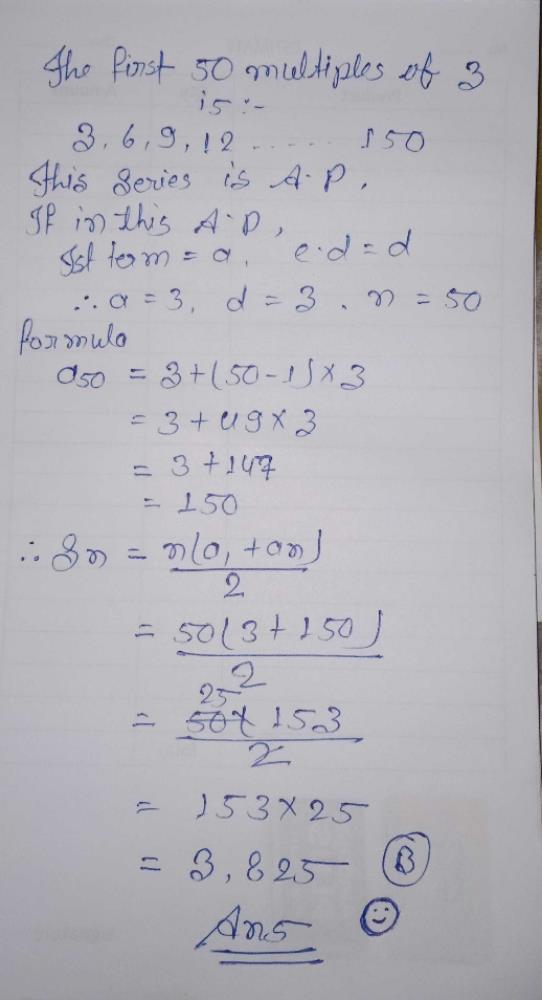 The first 50 multiples of 3
is :-
3, 6, 9, 12 ........ 150
This Series is A.P,
If in this A.P,
Ist term = a, c.d = d
∴ a = 3, d = 3, n = 50
formula
a50 = 3+(50-1)×3
= 3+49×3
= 3+147
= 150
∴ Sn = n(a1+an)
2
= 50(3+150)
2
25
= 50× 153
2
= 153×25
= 3,825 B
Ans